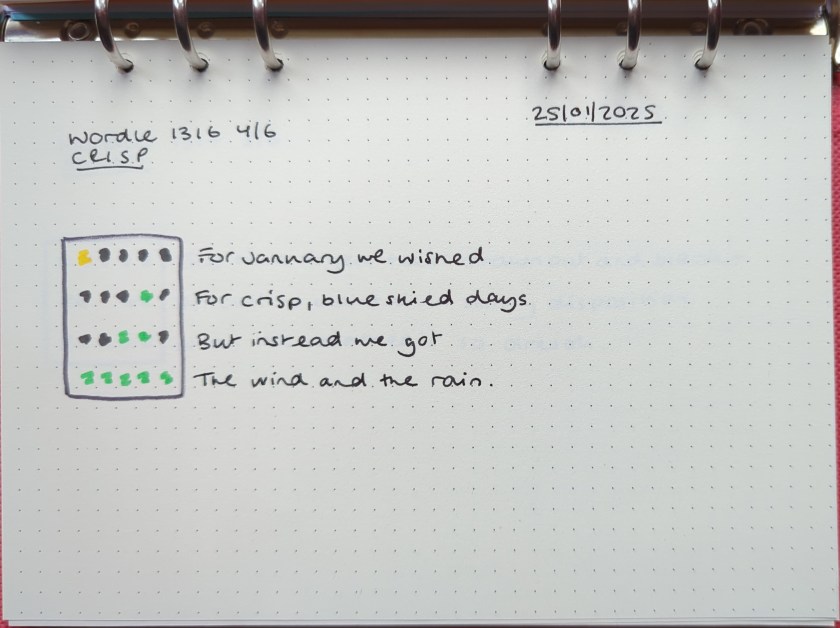 25/01/2025
Wordle 1316 4/6
CRISP
For January we wished
For crisp, blue skied days
But instead we got
The wind and the rain.